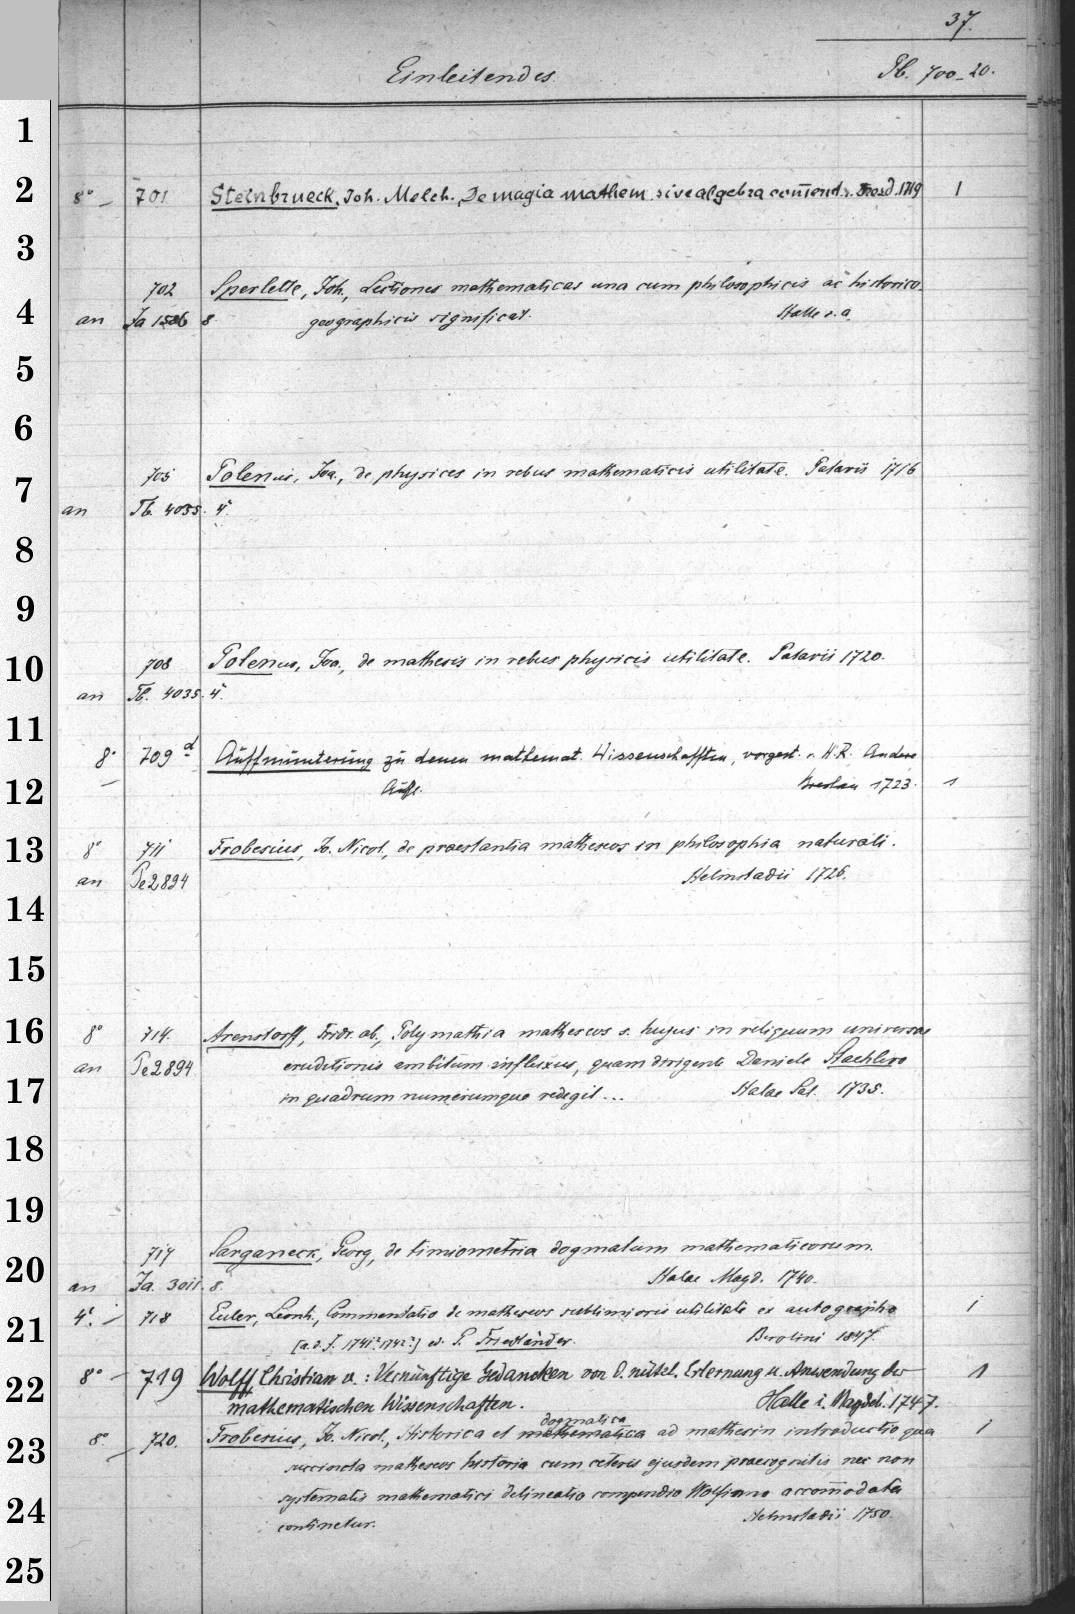 37.
Einleitendes
Pb. 700-20.
1
2 8° 701 Steinbrueck, Joh. Melch., De magia mathem. sive algebra com̄end. Dresd. 1719 1
3
702 Sperlette, Joh., Lectiones mathematicas una cum philosophicis ac historico-
4 an Ja 1506 8. geographicis significat. Halle s. a.
5
6
705 Polenus, Joa., de physices in rebus mathematicis utilitate. Patavii 1716
7 an Pb. 4035. 4°.
8
9
10 708 Polenus, Joa., de mathesis in rebus physicis utilitate. Patavii 1720.
an Pb. 4035. 4°.
11
8° 709 d Auffmunterung zu denen mathemat. Wissenschafften, vorgest. v. H.R. Andere
12 Aufl. Breslau 1723. 1
13 8° 711 Frobesius, Jo. Nicol., de praestantia matheseos in philosophia naturali.
an Pe 2894 Helmstadii 1726.
14
15
16 8° 714. Arenstorff, Fridr. ab, Polymathia matheseos s. hujus in reliquum universae
an Pe 2894 eruditionis ambitum influxus, quam dirigente Daniele Staehlero
17 in quadrum numerumque redegit... Halae Sal. 1735.
18
19
717 Sarganeck, Georg, de timiometria dogmatum mathematicorum.
20 an Ja. 3011. 8. Halae Magd. 1740.
4°. 718 Euler, Leonh., Commentatio de matheseos sublimioris utilitate ex autographo 1
21 [a. d. J. 1741? 1742?] ed. P. Friedländer. Berolini 1847.
22 8° 719 Wolff Christian v.: Vernünftige Gedancken von d. nützl. Erlernung u. Anwendung der 1
mathematischen Wissenschaften. Halle i. Magdeb. 1747.
dogmatica
23 8°. 720. Frobesius, Jo. Nicol., Historica et mathematica ad mathesin introductio qua 1
succincta matheseos historia cum ceteris ejusdem praecognitis nec non
24 systematis mathematici delineatio compendio Wolfiano accom̄odata
continetur. Helmstadii 1750.
25